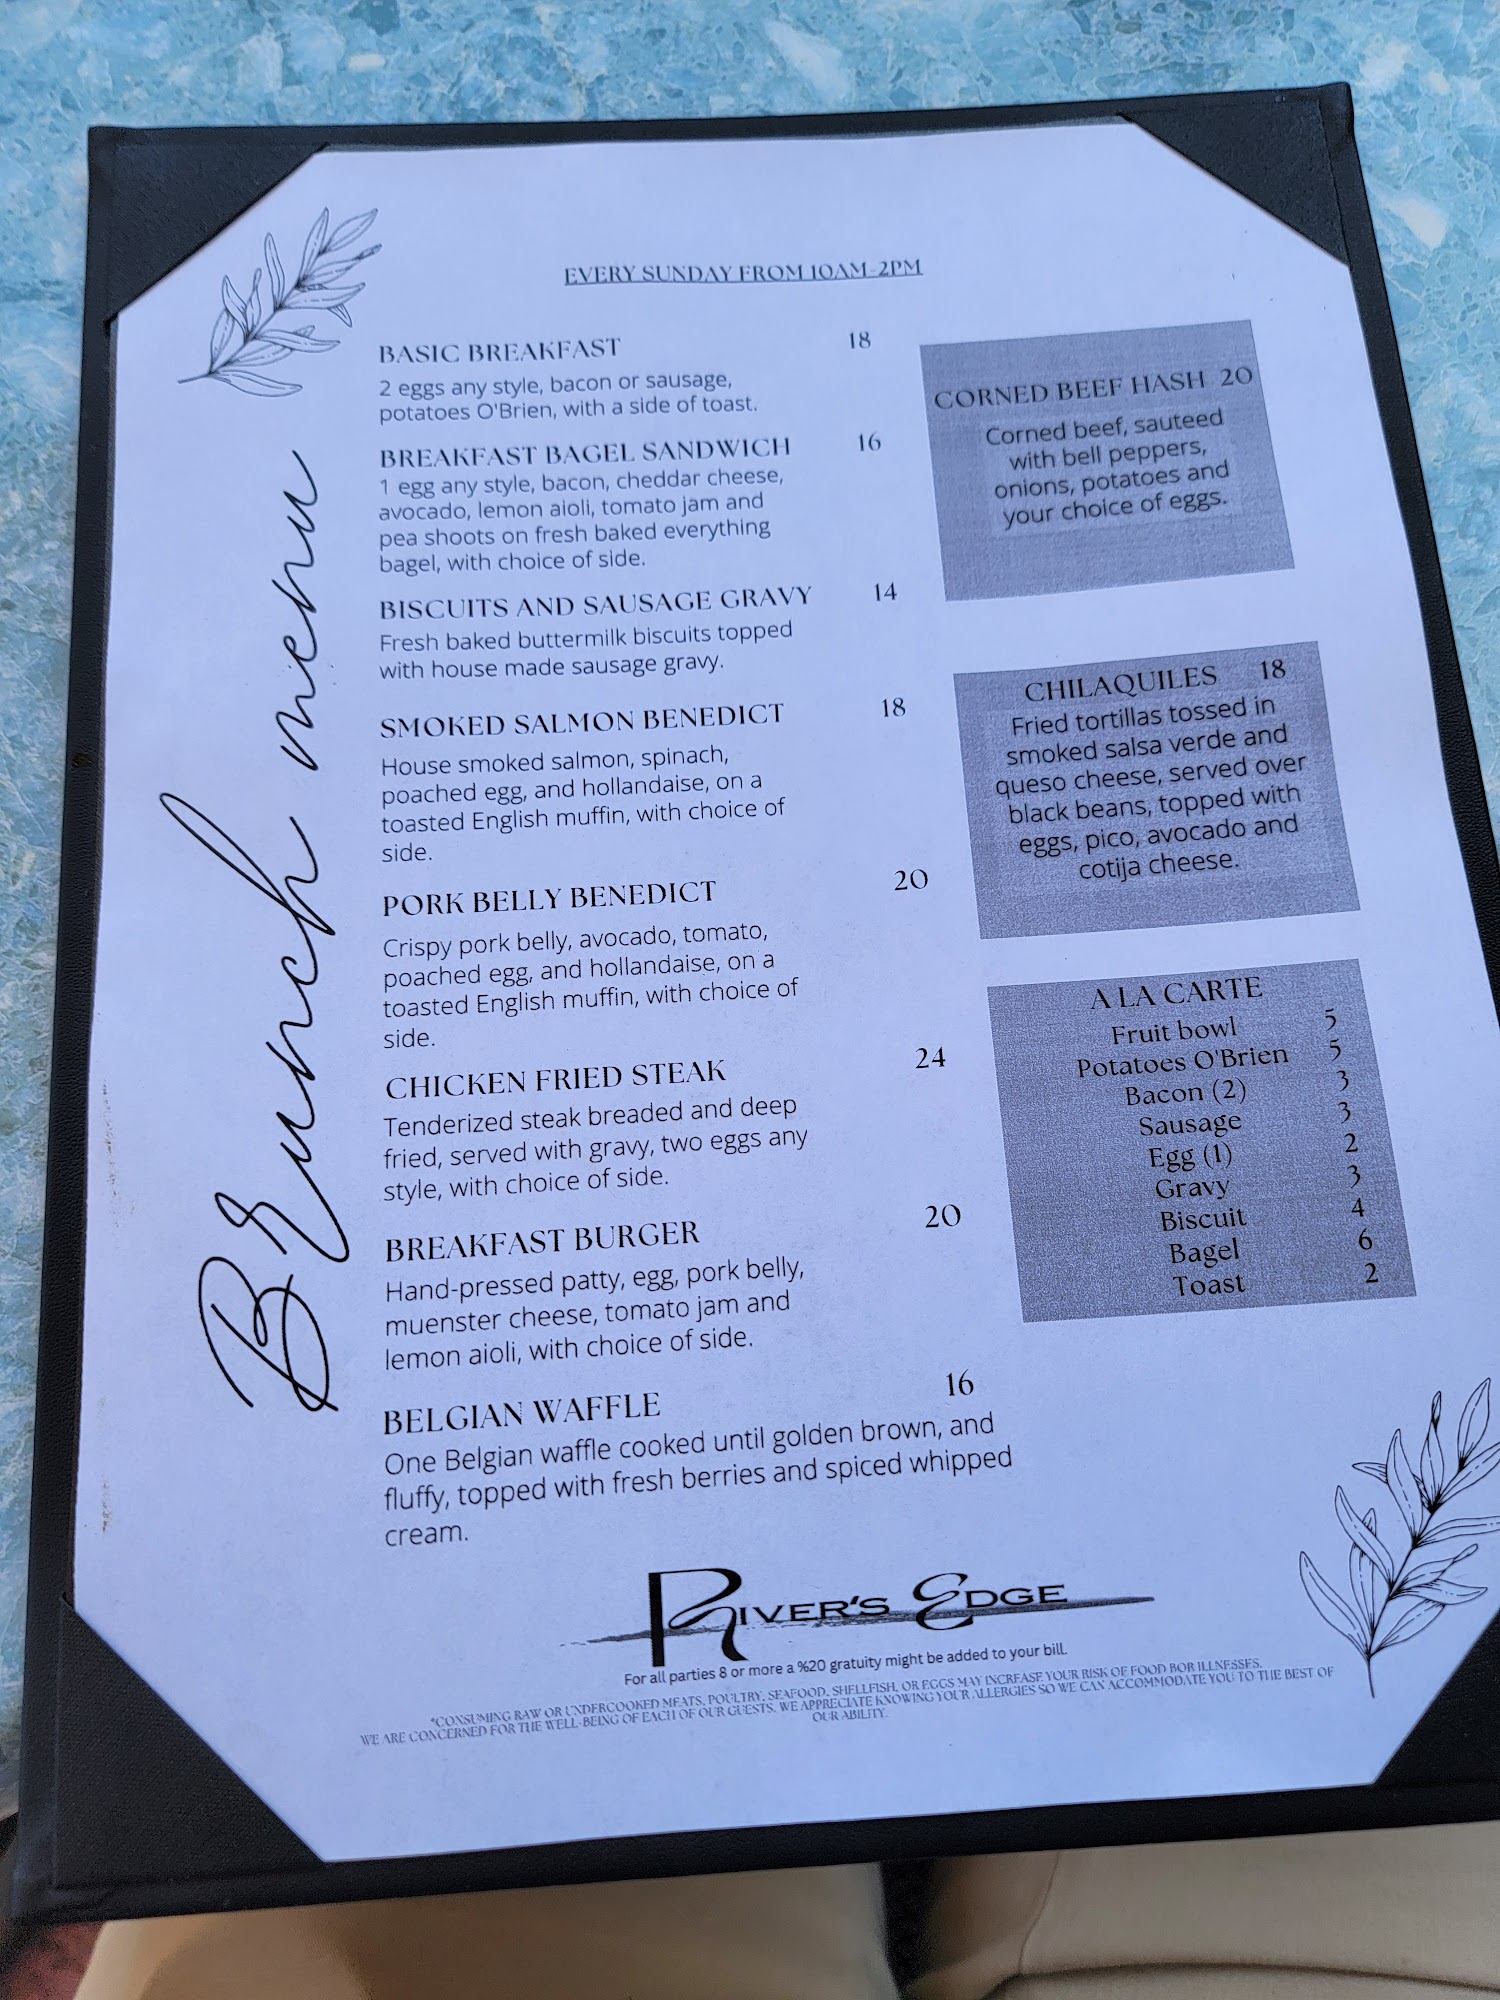 Brunch menu
EVERY SUNDAY FROM 10AM-2PM
BASIC BREAKFAST 18
2 eggs any style, bacon or sausage,
potatoes O'Brien, with a side of toast.
BREAKFAST BAGEL SANDWICH 16
1 egg any style, bacon, cheddar cheese,
avocado, lemon aioli, tomato jam and
pea shoots on fresh baked everything
bagel, with choice of side.
BISCUITS AND SAUSAGE GRAVY 14
Fresh baked buttermilk biscuits topped
with house made sausage gravy.
SMOKED SALMON BENEDICT 18
House smoked salmon, spinach,
poached egg, and hollandaise, on a
toasted English muffin, with choice of
side.
PORK BELLY BENEDICT 20
Crispy pork belly, avocado, tomato,
poached egg, and hollandaise, on a
toasted English muffin, with choice of
side.
CHICKEN FRIED STEAK 24
Tenderized steak breaded and deep
fried, served with gravy, two eggs any
style, with choice of side.
BREAKFAST BURGER 20
Hand-pressed patty, egg, pork belly,
muenster cheese, tomato jam and
lemon aioli, with choice of side.
BELGIAN WAFFLE 16
One Belgian waffle cooked until golden brown, and
fluffy, topped with fresh berries and spiced whipped
cream.
CORNED BEEF HASH 20
Corned beef, sauteed
with bell peppers,
onions, potatoes and
your choice of eggs.
CHILAQUILES 18
Fried tortillas tossed in
smoked salsa verde and
queso cheese, served over
black beans, topped with
eggs, pico, avocado and
cotija cheese.
A LA CARTE
Fruit bowl 5
Potatoes O'Brien 5
Bacon (2) 3
Sausage 3
Egg (1) 2
Gravy 3
Biscuit 4
Bagel 6
Toast 2
RIVER'S EDGE
For all parties 8 or more a %20 gratuity might be added to your bill.
*CONSUMING RAW OR UNDERCOOKED MEATS, POULTRY, SEAFOOD, SHELLFISH, OR EGGS MAY INCREASE YOUR RISK OF FOOD BOR ILLNESSES.
WE ARE CONCERNED FOR THE WELL-BEING OF EACH OF OUR GUESTS. WE APPRECIATE KNOWING YOUR ALLERGIES SO WE CAN ACCOMMODATE YOU TO THE BEST OF
OUR ABILITY.